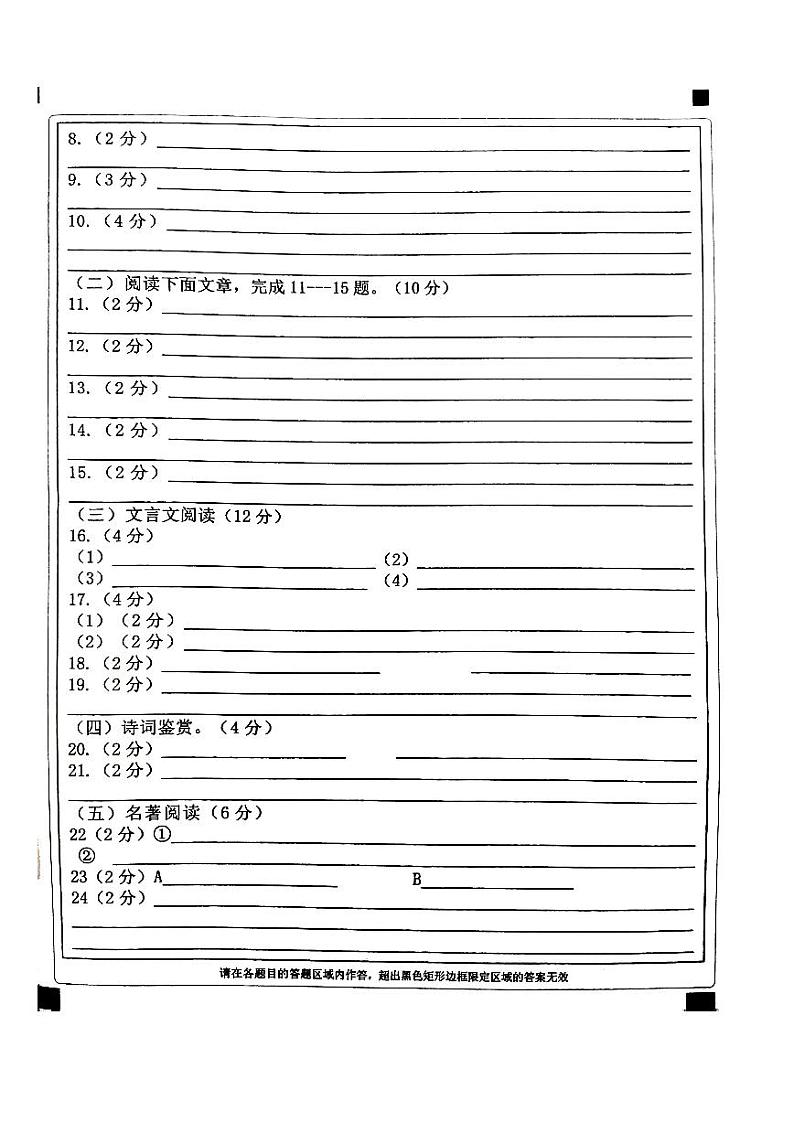 8.（2 分）
9.（3 分）
10.（4 分）
（二）阅读下面文章，完成 11---15 题。（10 分）
11.（2 分）
12.（2 分）
13.（2 分）
14.（2 分）
15.（2 分）
（三）文言文阅读（12 分）
16.（4 分）
（1） （2）
（3） （4）
17.（4 分）
（1）（2 分）
（2）（2 分）
18.（2 分）
19.（2 分）
（四）诗词鉴赏。（4 分）
20.（2 分）
21.（2 分）
（五）名著阅读（6 分）
22（2 分）①
②
23（2 分）A B
24（2 分）
请在各题目的答题区域内作答，超出黑色矩形边框限定区域的答案无效